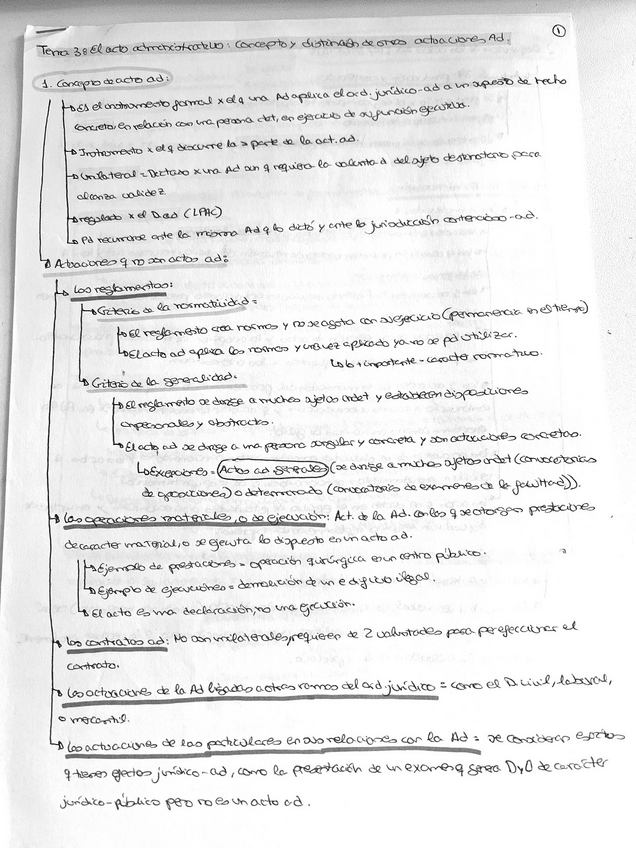 ①
Tema 3: El acto administrativo: concepto y distinción de otras actuaciones Ad.
1. Concepto de acto ad:
Es el instrumento formal x el q una Ad aplica el ord. jurídico-ad a un supuesto de hecho
concreto en relación con una persona det, en ejercicio de su función ejecutiva.
Instrumento x el q discurre la > parte de la act. ad.
Unilateral = Dictado x una Ad aun q requiera la voluntad del sujeto destinatario para
alcanzar validez.
regulado x el D ad (LPAC)
Pd recurrirse ante la misma Ad q lo dictó y ante la jurisdicción contencioso-ad.
Actuaciones q no son actos ad:
Los reglamentos:
Criterio de la normatividad:
El reglamento crea normas y no se agota con su ejercicio (permanencia en el tiempo)
El acto ad aplica las normas y una vez aplicado ya no se pd utilizar.
lo + importante - carácter normativo.
Criterio de la generalidad:
El reglamento se dirige a muchos sujetos indet y establecen disposiciones
impersonales y abstractas.
El acto ad se dirige a una persona singular y concreta y son actuaciones concretas.
Excepciones: Actos ad generales (se dirige a muchos sujetos indet (convocatorias
de oposiciones) o determinado (convocatoria de examenes de la facultad)).
Las operaciones materiales, o de ejecución: Act. de la Ad. en las q se otorgan prestaciones
de carácter material, o se ejecuta lo dispuesto en un acto ad.
Ejemplo de prestaciones = operación quirúrgica en un centro público.
Ejemplo de ejecuciones = demolición de un edificio ilegal.
El acto es una declaración, no una ejecución.
Los contratos ad: No son unilaterales, requieren de 2 voluntades para perfeccionar el
contrato.
Las actuaciones de la Ad ligadas a otras ramas del ord jurídico = como el D civil, laboral,
o mercantil.
Las actuaciones de los particulares en sus relaciones con la Ad = se consideran escritos
q tienen efectos jurídico-ad, como la presentación de un examen q genera D y O de carácter
jurídico-público pero no es un acto ad.